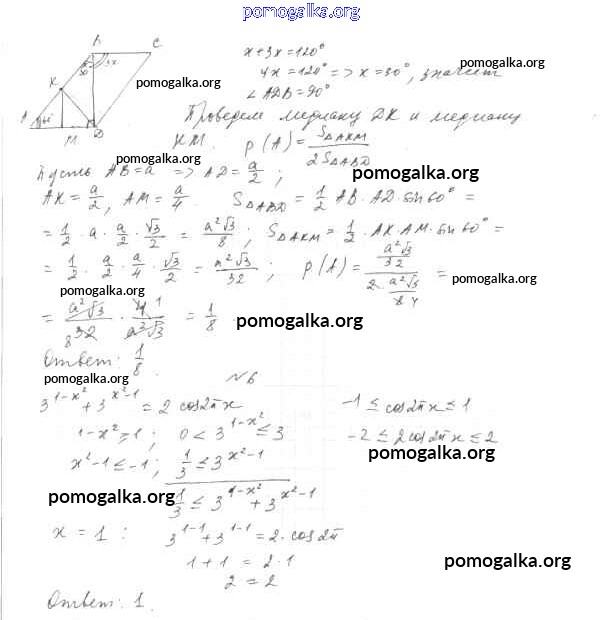 pomogalka.org
B C
x + 3x = 120°
30° 3x
4x = 120° => x = 30°, значит
pomogalka.org
pomogalka.org
K
∠ADB = 90°
A M D
Проведем медиану DK и медиану
KM. P(A) = S△AKM / 2S△ABD
pomogalka.org
Пусть AB = a => AD = a/2 ;
pomogalka.org
AK = a/2, AM = a/4. S△ABD = 1/2 AB · AD · sin 60° =
= 1/2 · a · a/2 · √3/2 = a²√3/8 ; S△AKM = 1/2 · AK · AM · sin 60° =
= 1/2 · a/2 · a/4 · √3/2 = a²√3/32 ; P(A) = (a²√3/32) / (2 · a²√3/8 4) =
pomogalka.org
pomogalka.org
= a²√3/8 32 · 4 1/a²√3 = 1/8
pomogalka.org
Ответ: 1/8.
pomogalka.org
N6
3^(1-x²) + 3^(x²-1) = 2 cos2πx
-1 ≤ cos2πx ≤ 1
1-x² ≥ 1 ; 0 < 3^(1-x²) ≤ 3
-2 ≤ 2cos2πx ≤ 2
x²-1 ≤ -1 ; 1/3 ≤ 3^(x²-1)
pomogalka.org
pomogalka.org
1/3 ≤ 3^(1-x²) + 3^(x²-1)
x = 1 : 3^(1-1) + 3^(1-1) = 2 · cos2π
1 + 1 = 2 · 1
pomogalka.org
2 = 2
Ответ: 1.